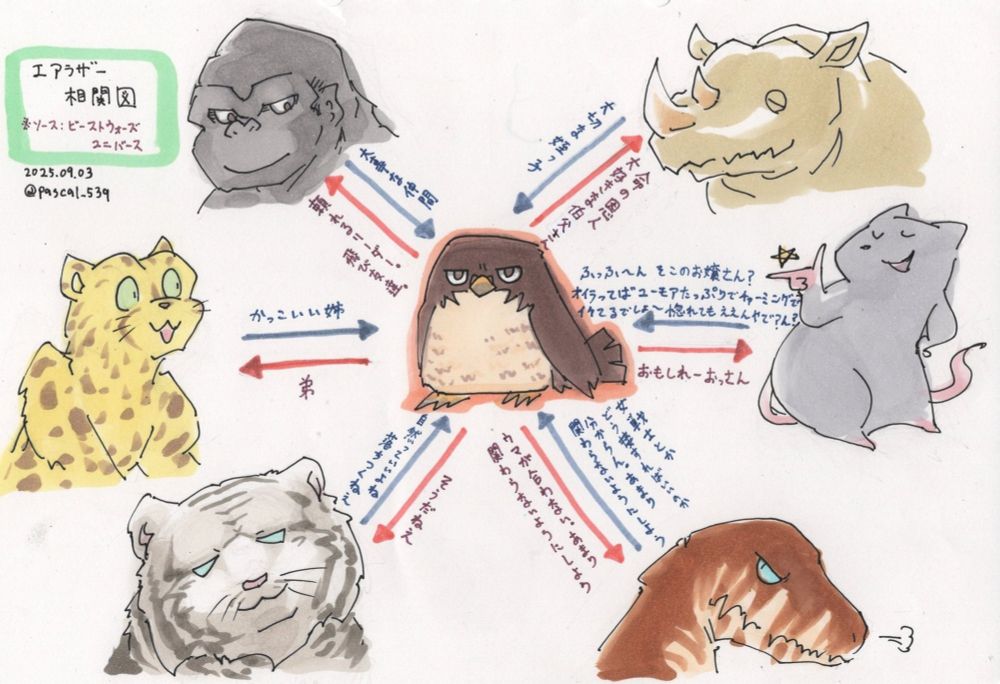 エアラザー
相関図
※ソース：ビーストウォーズ
ユニバース
2025.09.03
@pascal_539
大事な仲間
頼れるリーダー。
飛ぶ友達。
大切な姪っ子
命の恩人
大好きな伯父さん
かっこいい姉
弟
ふっふぃ〜ん そこのお嬢さん？
オイラってばユーモアたっぷりでチャーミングで
イケてるでしょ〜惚れてもええんやで？ん？
おもしれーおっさん
自然っていいよなる
落ちつくする
そうだねえ
ウマが合わない。あまり
関わらないようにしよう
女戦士とか
どう接すればいいか
分からん。あまり
関わらないようにしよう